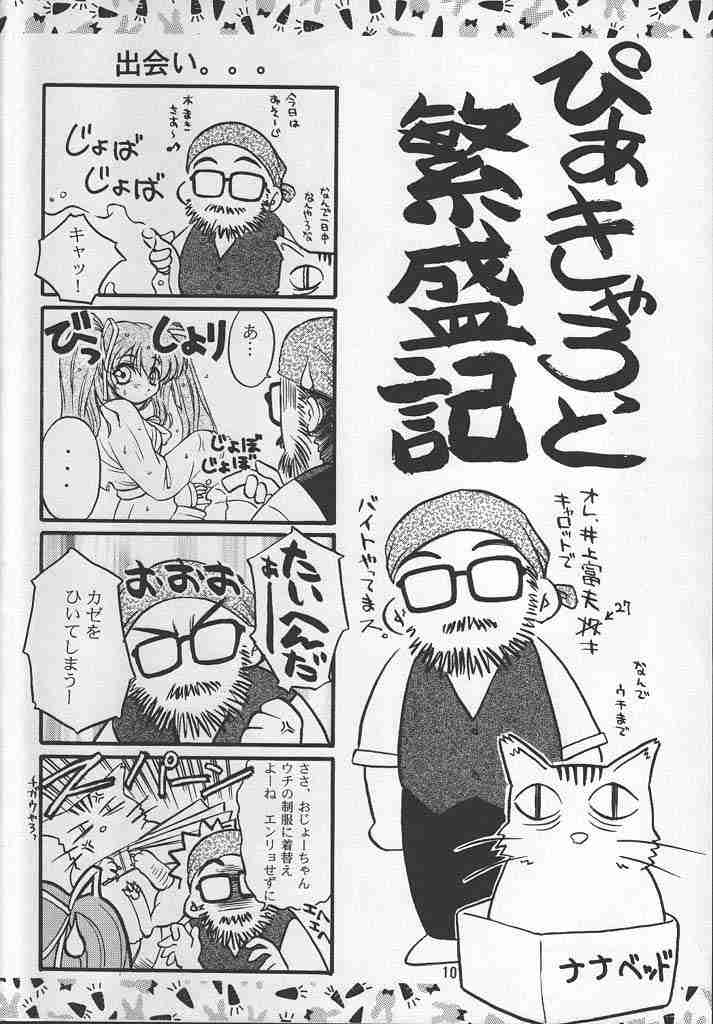 ぴあきゃろっと
繁盛記
オレ、井上富夫 27才
キャロットで
バイトやってまス。
なんで
ウチまで
ナナベッド
10
出会い。。。
今日は
水まき
さあ〜♪
じょば
じょば
なんで一日中
なんやろな
キャッ!
あ…
じょり
びっ
じょぼ
じょぼ
・・・
たいへんだ
ぁーー
おおお
カゼを
ひいてしまうー
ささ、おじょーちゃん
ウチの制服に着替え
よーね エンリョせずに
エへ
エへ
ズパーン
チガウやろ?